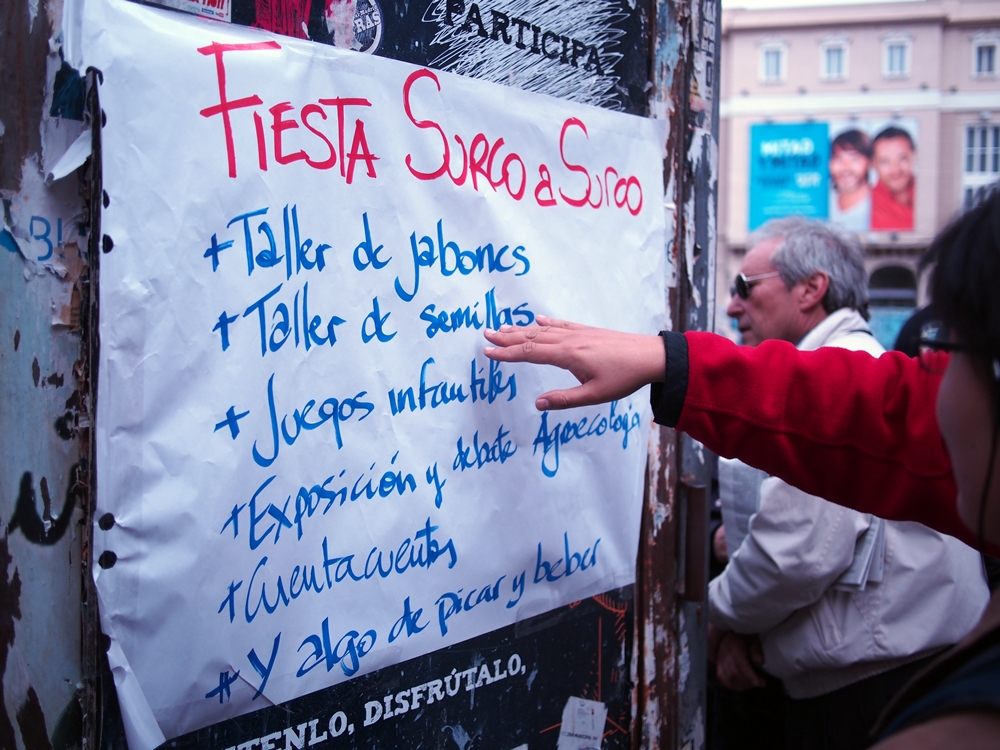 PARTICIPA
FIESTA SURCO a SURCO
+ Taller de jabones
+ Taller de semillas
+ Juegos infantiles
+ Exposición y debate Agroecología
+ Cuentacuentos
+ Y algo de picar y beber
TENLO, DISFRÚTALO,
B!
MITAD